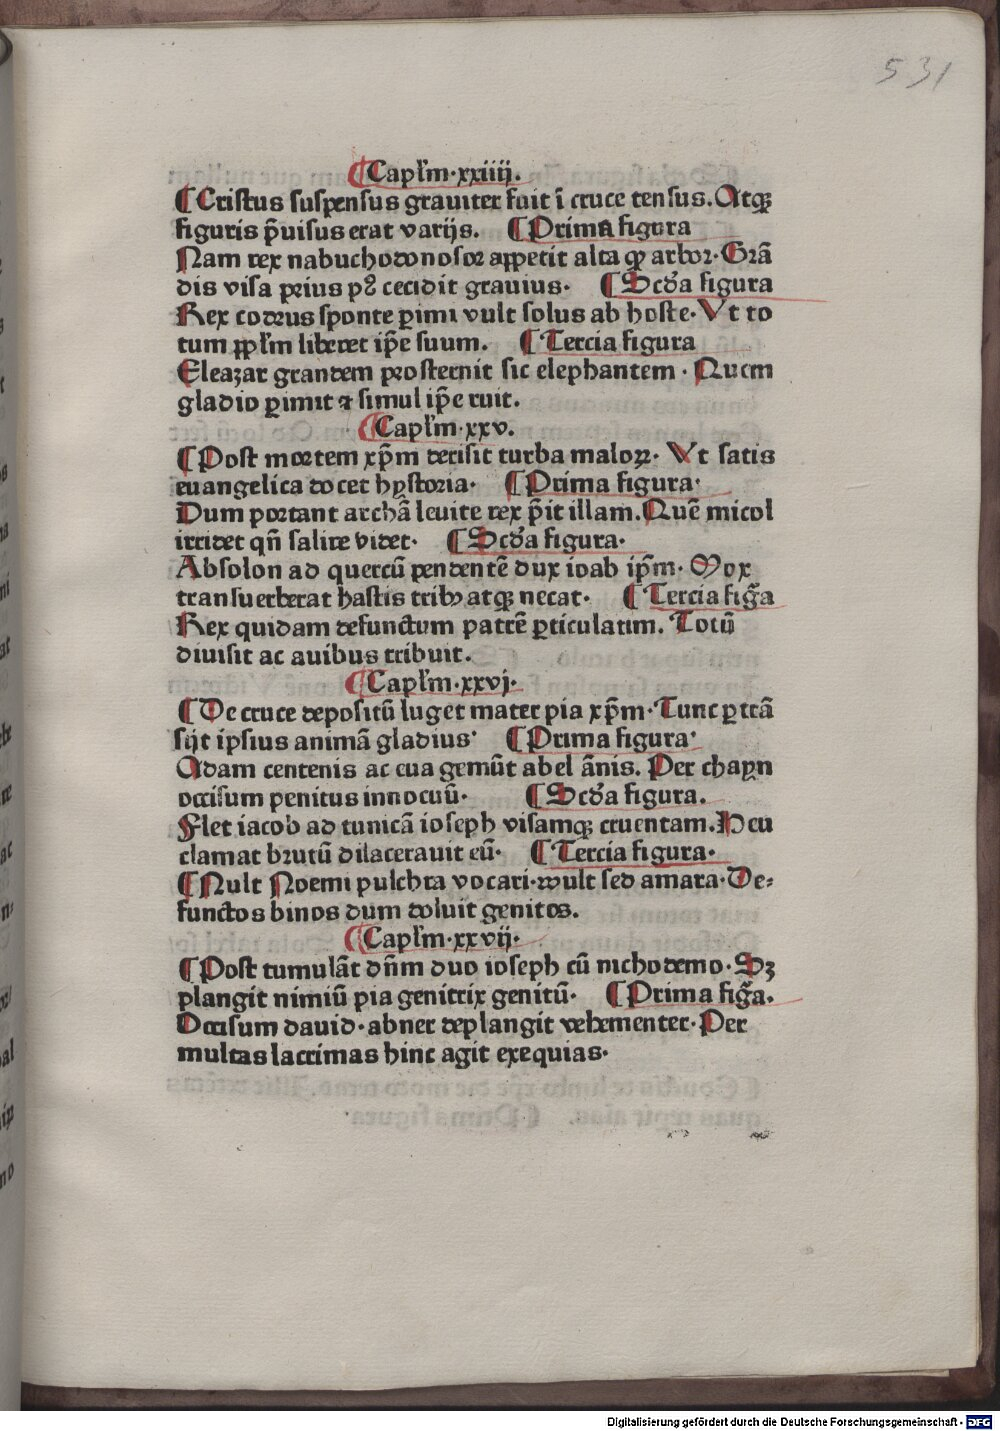 531
¶Capłm·xxiiij.
¶Cristus suspensus grauiter fuit ī cruce tensus. Atqꝫ
figuris p̄uisus erat varijs. ¶Prima figura
Nam rex nabuchodonosor appetit alta qꝫ arbor· Grā
dis visa prius pꝰ cecidit grauius· ¶Scd̄a figura
Rex codrus sponte ꝑimi vult solus ab hoste· Vt to
tum ppłm liberet ip̄e suum. ¶Tercia figura
Eleazar grandem prosternit sic elephantem· Quem
gladio ꝑimit ⁊ simul ip̄e ruit.
¶Capłm·xxv.
¶Post mortem xp̄m derisit turba maloꝝ· Vt satis
euangelica docet hystoria· ¶Prima figura·
Dum portant archā leuite rex p̄it illam. Quē micol
irridet qn̄ salire videt· ¶Scd̄a figura·
Absolon ad quercū pendentē dux ioab ip̄m· Mox
transuerberat hastis tribꝰ atqꝫ necat· ¶Tercia fig̃a
Rex quidam defunctum patrē ꝑticulatim. Totū
diuisit ac auibus tribuit.
¶Capłm·xxvj·
¶De cruce depositū luget mater pia xp̄m· Tunc ꝑtrā
sijt ipsius animā gladius· ¶Prima figura·
Adam centenis ac eua gemūt abel ānis. Per chayn
occisum penitus innocuū· ¶Scd̄a figura.
Flet iacob ad tunicā ioseph visamqꝫ cruentam. Heu
clamat brutū dilacerauit eū· ¶Tercia figura·
¶Nult Noemi pulchra vocari· wult sed amara· De⸗
functos binos dum doluit genitos.
¶Capłm·xxvij·
¶Post tumulāt dn̄m duo ioseph cū nichodemo· Sꝫ
plangit nimiū pia genitrix genitū· ¶Prima fig̃a.
Occisum dauid· abner deplangit vehementer· Per
multas lacrimas hinc agit exequias·
Digitalisierung gefördert durch die Deutsche Forschungsgemeinschaft - DFG